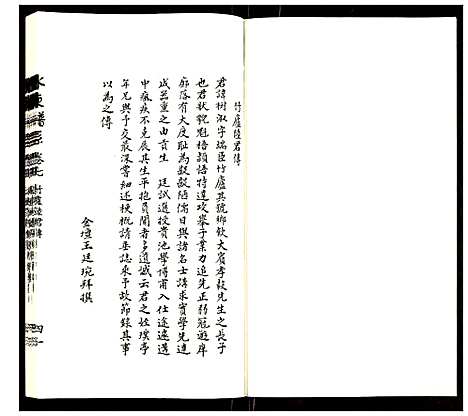 竹廬陸君傳
君諱樹淑字瑞臣竹廬其號鄉飲大賓孝敍先生之長子
也君狀貌魁梧穎語特達攻舉子業力追先正弱冠遊庠
廓落有大度耻為齪齪陋儒日與諸名士講求實學先達
咸器重之由貢生 廷試選授貴池學博甫入仕途遽遘
中瘋疾不克展其生平抱負聞者多遺憾云君之姪璞亭
年兄與予交最深嘗細述梗概請並誌來予故節錄其事
以為之傳
金壇王廷琬拜撰
竹廬陸君傳